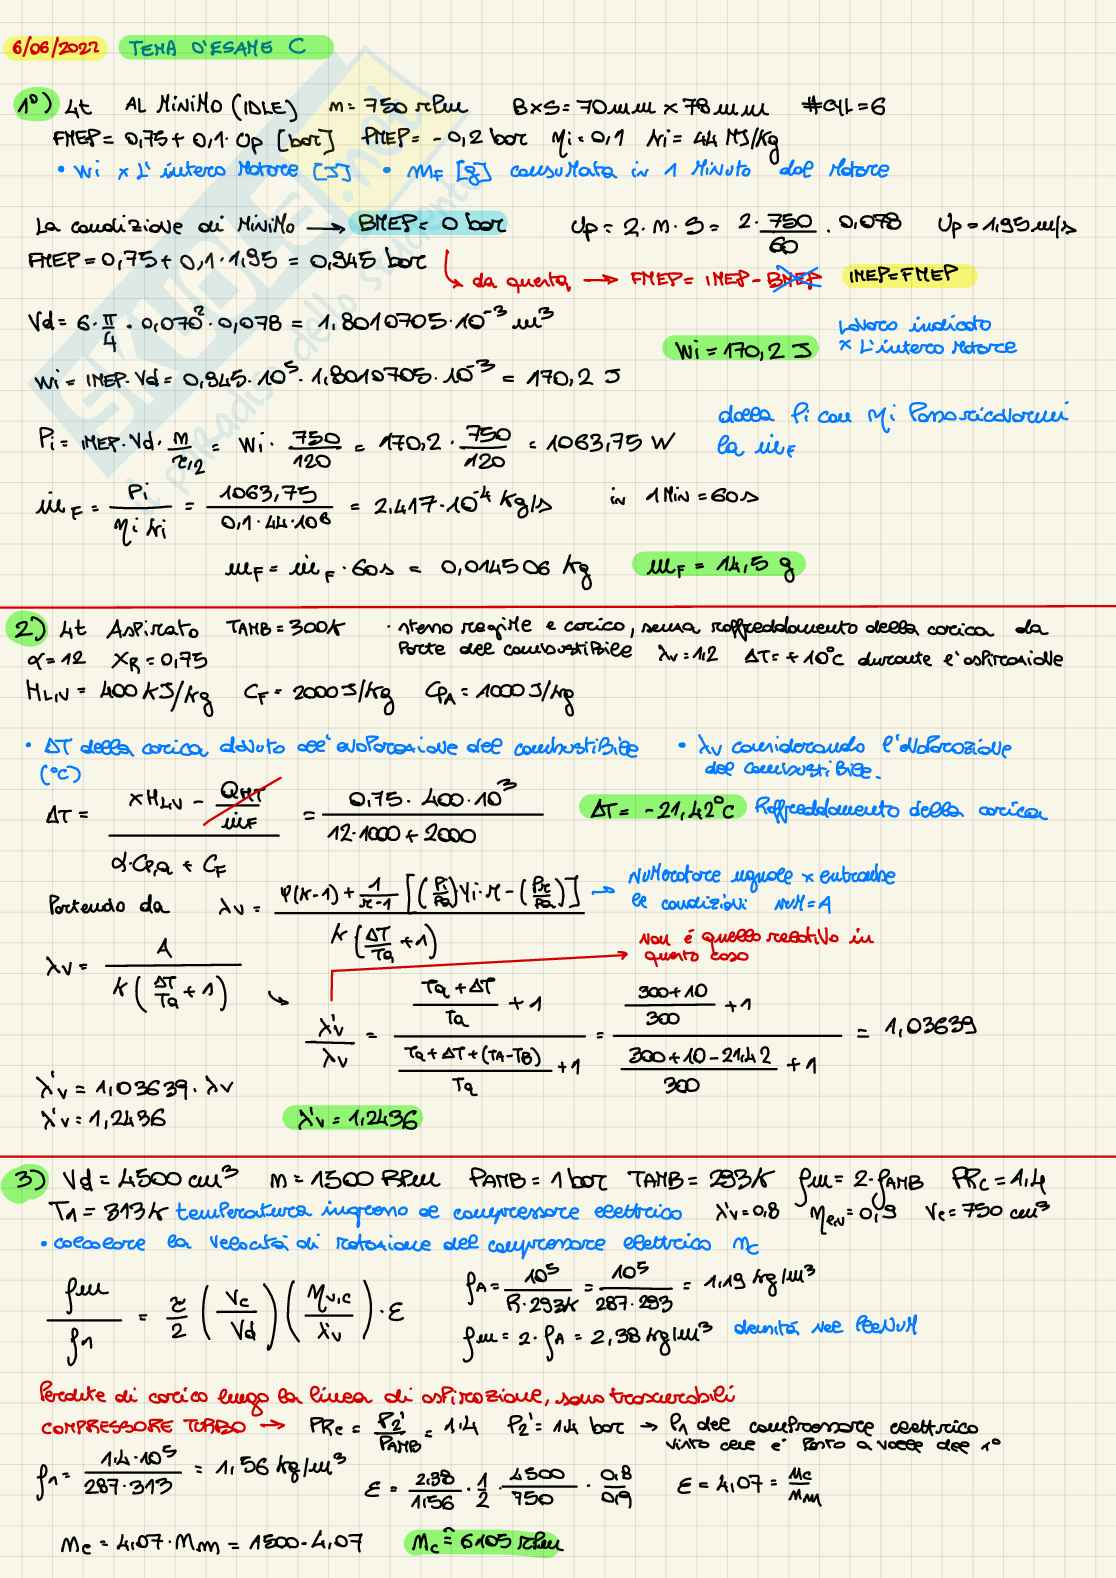 6/06/2022 TEMA D'ESAME C
1°) 4t AL MINIMO (IDLE) n = 750 rpm B×S = 70mm × 78mm #CYL = 6
FMEP = 0,75 + 0,1 · Up [bar] PMEP = -0,2 bar ηi = 0,1 Hi = 44 MJ/kg
• Wi × L'intero Motore [J] • mF [g] consumata in 1 Minuto dal Motore
La condizione di MINIMO → BMEP = 0 bar Up = 2 · n · S = 2 · 750/60 · 0,078 Up = 1,95 m/s
FMEP = 0,75 + 0,1 · 1,95 = 0,945 bar
da questa → FMEP = IMEP - BMEP IMEP = FMEP
Vd = 6 · π/4 · 0,070² · 0,078 = 1,8010705 · 10⁻³ m³
Wi = 170,2 J Lavoro indicato
× L'intero Motore
Wi = IMEP · Vd = 0,945 · 10⁵ · 1,8010705 · 10⁻³ = 170,2 J
dalla Pi con ηi Posso ricavarmi
la ṁF
Pi = IMEP · Vd · n/τ/2 = Wi · 750/120 = 170,2 · 750/120 = 1063,75 W
ṁF = Pi/ηi Hi = 1063,75/0,1 · 44 · 10⁶ = 2,417 · 10⁻⁴ kg/s in 1 Min = 60s
mF = ṁF · 60s = 0,014506 kg mF = 14,5 g
2) 4t Aspirato TAMB = 300K · stesso regime e carico, senza raffreddamento della carica da
parte del combustibile λv = 1,2 ΔT = +10°C durante l'aspirazione
α = 12 XR = 0,75
HLIV = 400 kJ/kg CF = 2000 J/kg CPA = 1000 J/kg
• ΔT della carica dovuto all'evaporazione del combustibile
(°C)
• λv considerando l'evaporazione
del combustibile.
ΔT = xHLIV - QHT/ṁF / α · CP,a + CF = 0,75 · 400 · 10³ / 12 · 1000 + 2000 ΔT = -21,42°C Raffreddamento della carica
Partendo da λv = φ(k-1) + 1/r-1 [(Pi/Pa)Yi · r - (Pr/Pa)] / k(ΔT/Ta + 1) → Numeratore uguale × entrambe
le condizioni NUM = A
λv = A / k(ΔT/Ta + 1)
Non è quello relativo in
questo caso
λ'v/λv = Ta + ΔT/Ta + 1 / Ta + ΔT + (TA-TB)/Ta + 1 = 300+10/300 + 1 / 300+10-21,42/300 + 1 = 1,03639
λ'v = 1,03639 · λv
λ'v = 1,2436 λ'v = 1,2436
3) Vd = 4500 cm³ n = 1500 RPM PAMB = 1 bar TAMB = 293K ρm = 2 · ρAMB PRc = 1,4
T1 = 313K temperatura ingresso al compressore elettrico λ'v = 0,8 ηev = 0,9 Vc = 750 cm³
• calcolare la velocità di rotazione del compressore elettrico nc
ρm/ρ1 = τ/2 (Vc/Vd)(ηv,c/λv) · ε ρA = 10⁵/R · 293K = 10⁵/287 · 293 = 1,19 kg/m³
ρm = 2 · ρA = 2,38 kg/m³ densità nel PLENUM
Perdite di carico lungo la linea di aspirazione, sono trascurabili
COMPRESSORE TURBO → PRc = P2'/PAMB = 1,4 P2' = 1,4 bar → P1 del compressore elettrico
visto che è Posto a valle del 1°
ρ1 = 1,4 · 10⁵/287 · 313 = 1,56 kg/m³ ε = 2,38/1,56 · 1/2 · 4500/750 · 0,8/0,9 ε = 4,07 = nc/nm
nc = 4,07 · nm = 1500 · 4,07 nc = 6105 rpm